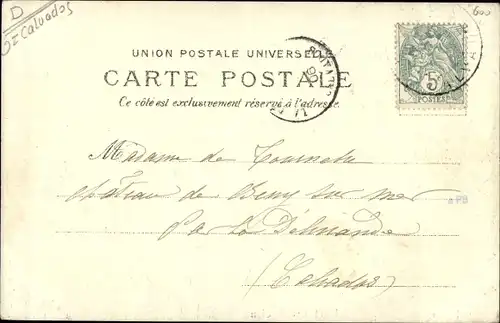 D
Calvados
600
UNION POSTALE UNIVERSELLE
CARTE POSTALE
Ce côté est exclusivement réservé à l'adresse.
5
POSTES
Madame de
château de Beny sur mer
par la Délivrande
(Calvados)